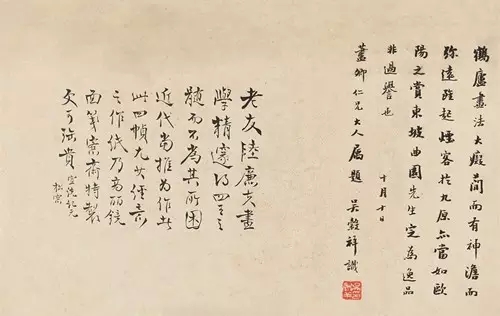 鶴廬畫法大癡簡而有神澹而
彌遠雖起煙客於九原亦當如歐
陽之賞東坡曲園先生定為逸品
非過譽也 十月十日
藎卿仁兄大人屬題 吳穀祥識
老友陸廉夫畫
學精邃得四王之
髓而不為其所囿
近代當推為作
此四幀尤其經意
之作紙乃高麗鏡
面箋愙齋特製
可珍貴
宣統紀元